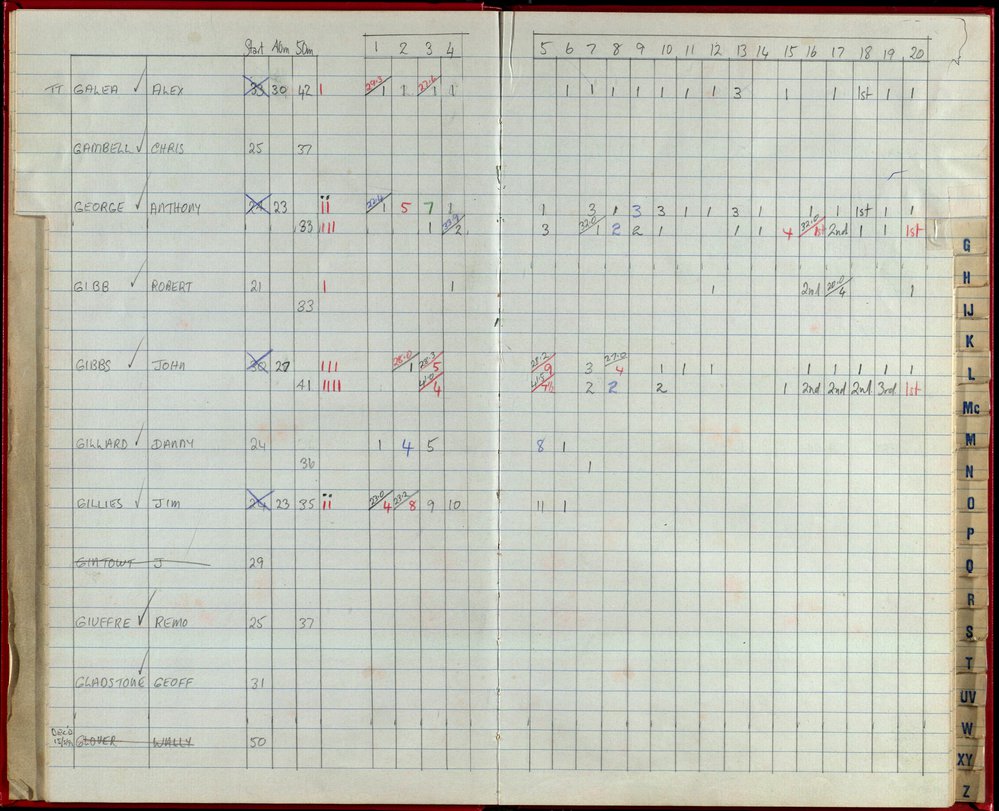 Start 40m 50m 1 2 3 4 5 6 7 8 9 10 11 12 13 14 15 16 17 18 19 20
TT GALEA ✓ ALEX 33 30 42 1 29.3 1 1 27.6 1 1 1 1 1 1 1 1 1 3 1 1 1st 1 1
GAMBELL ✓ CHRIS 25 37
GEORGE ✓ ANTHONY 24 23 ii 22.4 1 5 7 1 1 3 1 3 3 1 1 3 1 1 1 1st 1 1
33 1111 1 33.9 2 3 32.0 1 2 2 1 1 1 4 32.0 1st 2nd 1 1 1st
GIBB ✓ ROBERT 21 1 1 1 2nd 20.0 4 1
33
GIBBS ✓ JOHN 30 27 111 28.0 1 28.3 5 28.2 9 3 27.0 4 1 1 1 1 1 1 1 1
41 1111 41.0 4 41.5 2 2 2 1 2nd 2nd 2nd 3rd 1st
GILLARD ✓ DANNY 24 1 4 5 8 1
36 1
GILLIES ✓ JIM 24 23 35 ii 23.0 4 23.2 8 9 10 11 1
GINTOWT J 29
GIUFFRE ✓ REMO 25 37
GLADSTONE ✓ GEOFF 31
DEC'D GLOVER WALLY 50
G
H
IJ
K
L
Mc
M
N
O
P
Q
R
S
T
UV
W
XY
Z